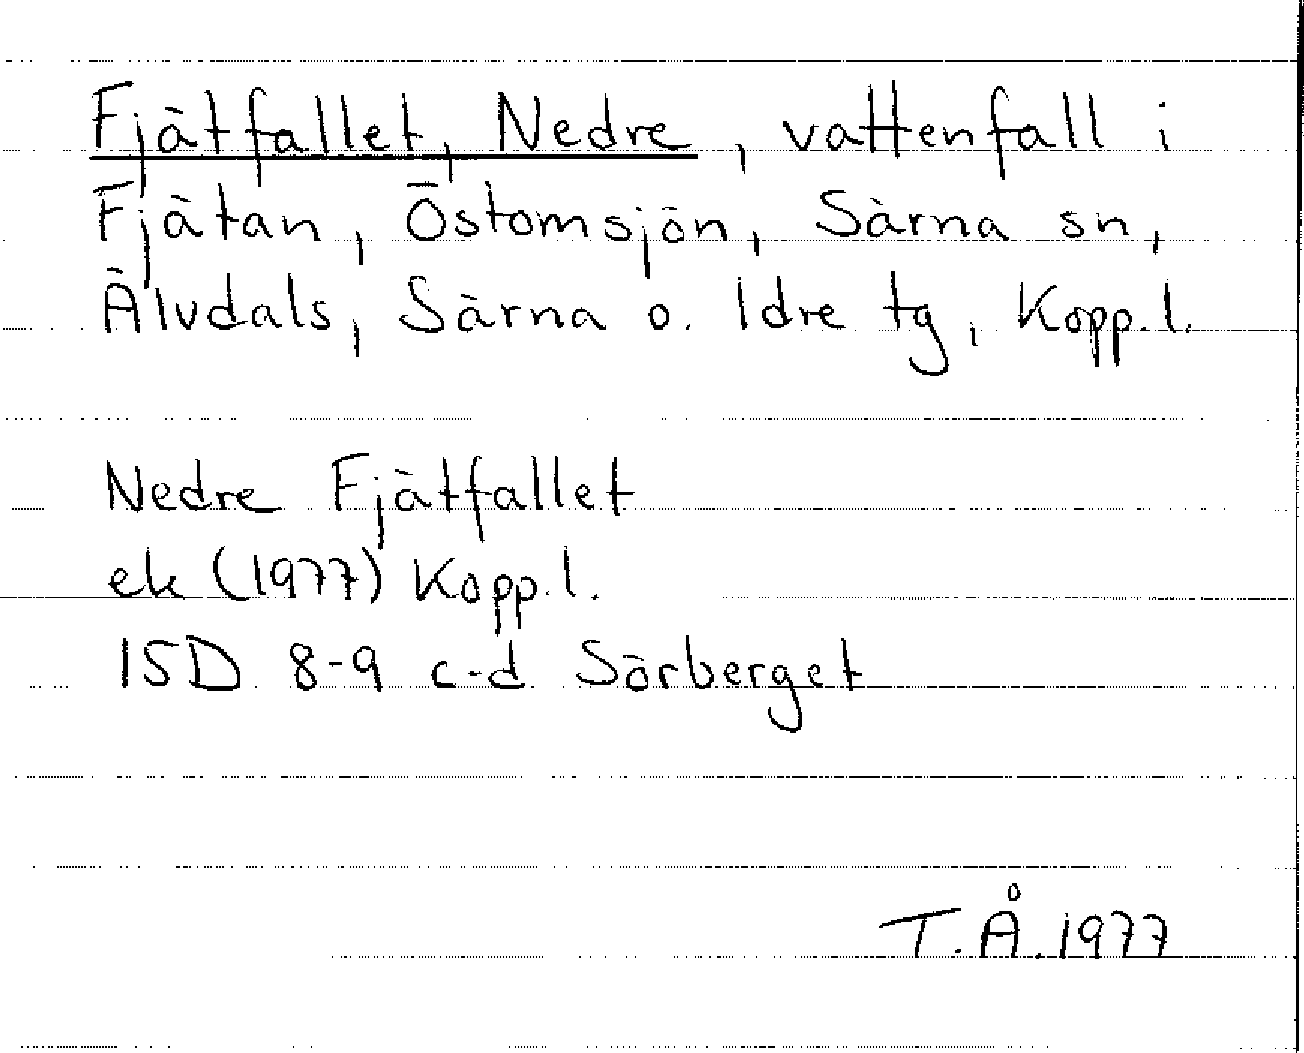 Fjätfallet, Nedre, vattenfall i
Fjätan, Östomsjön, Särna sn,
Älvdals, Särna o. Idre tg, Kopp. l.
Nedre Fjätfallet
ek (1977) Kopp. l.
15D 8-9 c-d Sörberget
T.Å. 1977